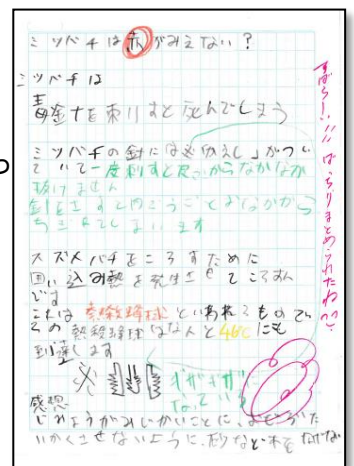 ミツバチは赤がみえない?
ミツバチは
毒針を刺すと死んでしまう
ミツバチの針には「かえし」がつい
ていて一度刺すと皮ふからなかなか
抜けません
針をさすと内ぞうごとおなかから
ちぎれてしまいます
スズメバチをころすために
囲い込み熱を発生させてころすん
です
これは 熱殺蜂球 といわれるもので、
その熱殺蜂球はなんと46℃にも
到達します
ギザギザ
なっている
感想
じゅみょうがみじかいことに
いかくさせないように、
すばらしい!! ばっちりまとめられたね